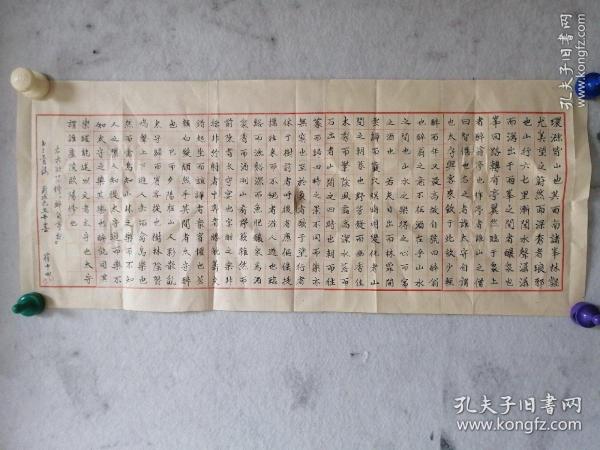 環滁皆山也其西南諸峯林壑
尤美望之蔚然而深秀者琅邪
也山行六七里漸聞水聲潺潺
而瀉出于兩峯之間者釀泉也
峯回路轉有亭翼然臨于泉上
者醉翁亭也作亭者誰山之僧
曰智僊也名之者誰太守自謂
也太守與客來飲于此飲少輒
醉而年又最高故自號曰醉翁
也醉翁之意不在酒在乎山水
之間也山水之樂得之心而寓
之酒也若夫日出而林霏開
雲歸而巖穴暝晦明變化者山
間之朝暮也野芳發而幽香佳
木秀而繁陰風霜高潔水落而
石出者山間之四時也朝而往
暮而歸四時之景不同而樂亦
無窮也至於負者歌于塗行者
休于樹前者呼後者應傴僂提
攜往來而不絕者滁人遊也臨
谿而漁谿深而魚肥釀泉為酒
泉香而酒洌山肴野蔌雜然而
前陳者太守宴也宴酣之樂非
絲非竹射者中弈者勝觥籌交
錯起坐而諠譁者眾賓懽也蒼
顏白髮頹然乎其間者太守醉
也已而夕陽在山人影散亂
太守歸而賓客從也樹林陰翳
鳴聲上下遊人去而禽鳥樂也
然而禽鳥知山林之樂而不知
人之樂人知從太守遊而樂而不
知太守之樂其樂也醉能同其
樂醒能述以文者太守也太守
謂誰廬陵歐陽修也
孔夫子旧书网
www.kongfz.com
孔夫子旧书网
www.kongfz.com